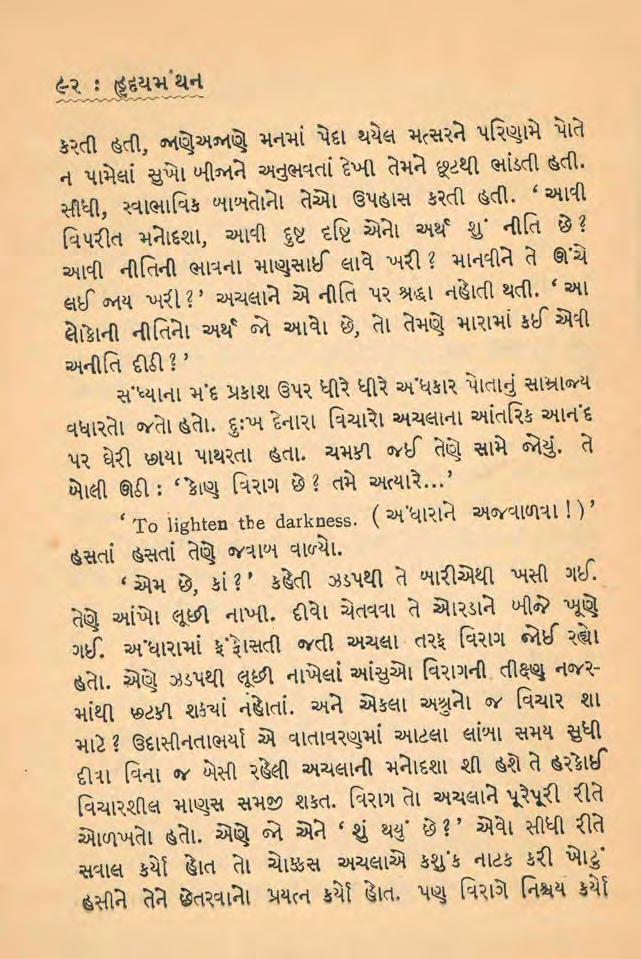 ૯૨ : હૃદયમંથન
કરતી હતી, જાણેઅજાણે મનમાં પેદા થયેલ મત્સરને પરિણામે પોતે
ન પામેલાં સુખો બીજાને અનુભવતાં દેખી તેમને છૂટથી ભાંડતી હતી.
સીધી, સ્વાભાવિક બાબતોનો તેઓ ઉપહાસ કરતી હતી. ‘ આવી
વિપરીત મનોદશા, આવી દુષ્ટ દૃષ્ટિ એનો અર્થ શું નીતિ છે ?
આવી નીતિની ભાવના માણસાઈ લાવે ખરી ? માનવીને તે ઊંચે
લઈ જાય ખરી ?’ અચલાને એ નીતિ પર શ્રદ્ધા નહોતી થતી. ‘ આ
લોકોની નીતિનો અર્થ જો આવો છે, તો તેમણે મારામાં કઈ એવી
અનીતિ દીઠી ?’
સંધ્યાના મંદ પ્રકાશ ઉપર ધીરે ધીરે અંધકાર પોતાનું સામ્રાજ્ય
વધારતો જતો હતો. દુઃખ દેનારા વિચારો અચલાના આંતરિક આનંદ
પર ઘેરી છાયા પાથરતા હતા. ચમકી જઈ તેણે સામે જોયું. તે
બોલી ઊઠી : ‘કોણ વિરાગ છે ? તમે અત્યારે...’
‘ To lighten the darkness. ( અંધારાને અજવાળવા ! )’
હસતાં હસતાં તેણે જવાબ વાળ્યો.
‘ એમ છે, કાં ?’ કહેતી ઝડપથી તે બારીએથી ખસી ગઈ.
તેણે આંખો લૂછી નાખી. દીવો ચેતવવા તે ઓરડાને બીજે ખૂણે
ગઈ. અંધારામાં ફંફોસતી જતી અચલા તરફ વિરાગ જોઈ રહ્યો
હતો. એણે ઝડપથી લૂછી નાખેલાં આંસુઓ વિરાગની તીક્ષ્ણ નજર-
માંથી છટકી શકયાં નહોતાં. અને એકલા અશ્રુનો જ વિચાર શા
માટે ? ઉદાસીનતાભર્યા એ વાતાવરણમાં આટલા લાંબા સમય સુધી
દીવા વિના જ બેસી રહેલી અચલાની મનોદશા શી હશે તે હરકોઈ
વિચારશીલ માણસ સમજી શકત. વિરાગ તો અચલાને પૂરેપૂરી રીતે
ઓળખતો હતો. એણે જો એને ‘ શું થયું છે ?’ એવો સીધી રીતે
સવાલ કર્યો હોત તો ચોક્કસ અચલાએ કશુંક નાટક કરી ખોટું
હસીને તેને છેતરવાનો પ્રયત્ન કર્યો હોત. પણ વિરાગે નિશ્ચય કર્યો